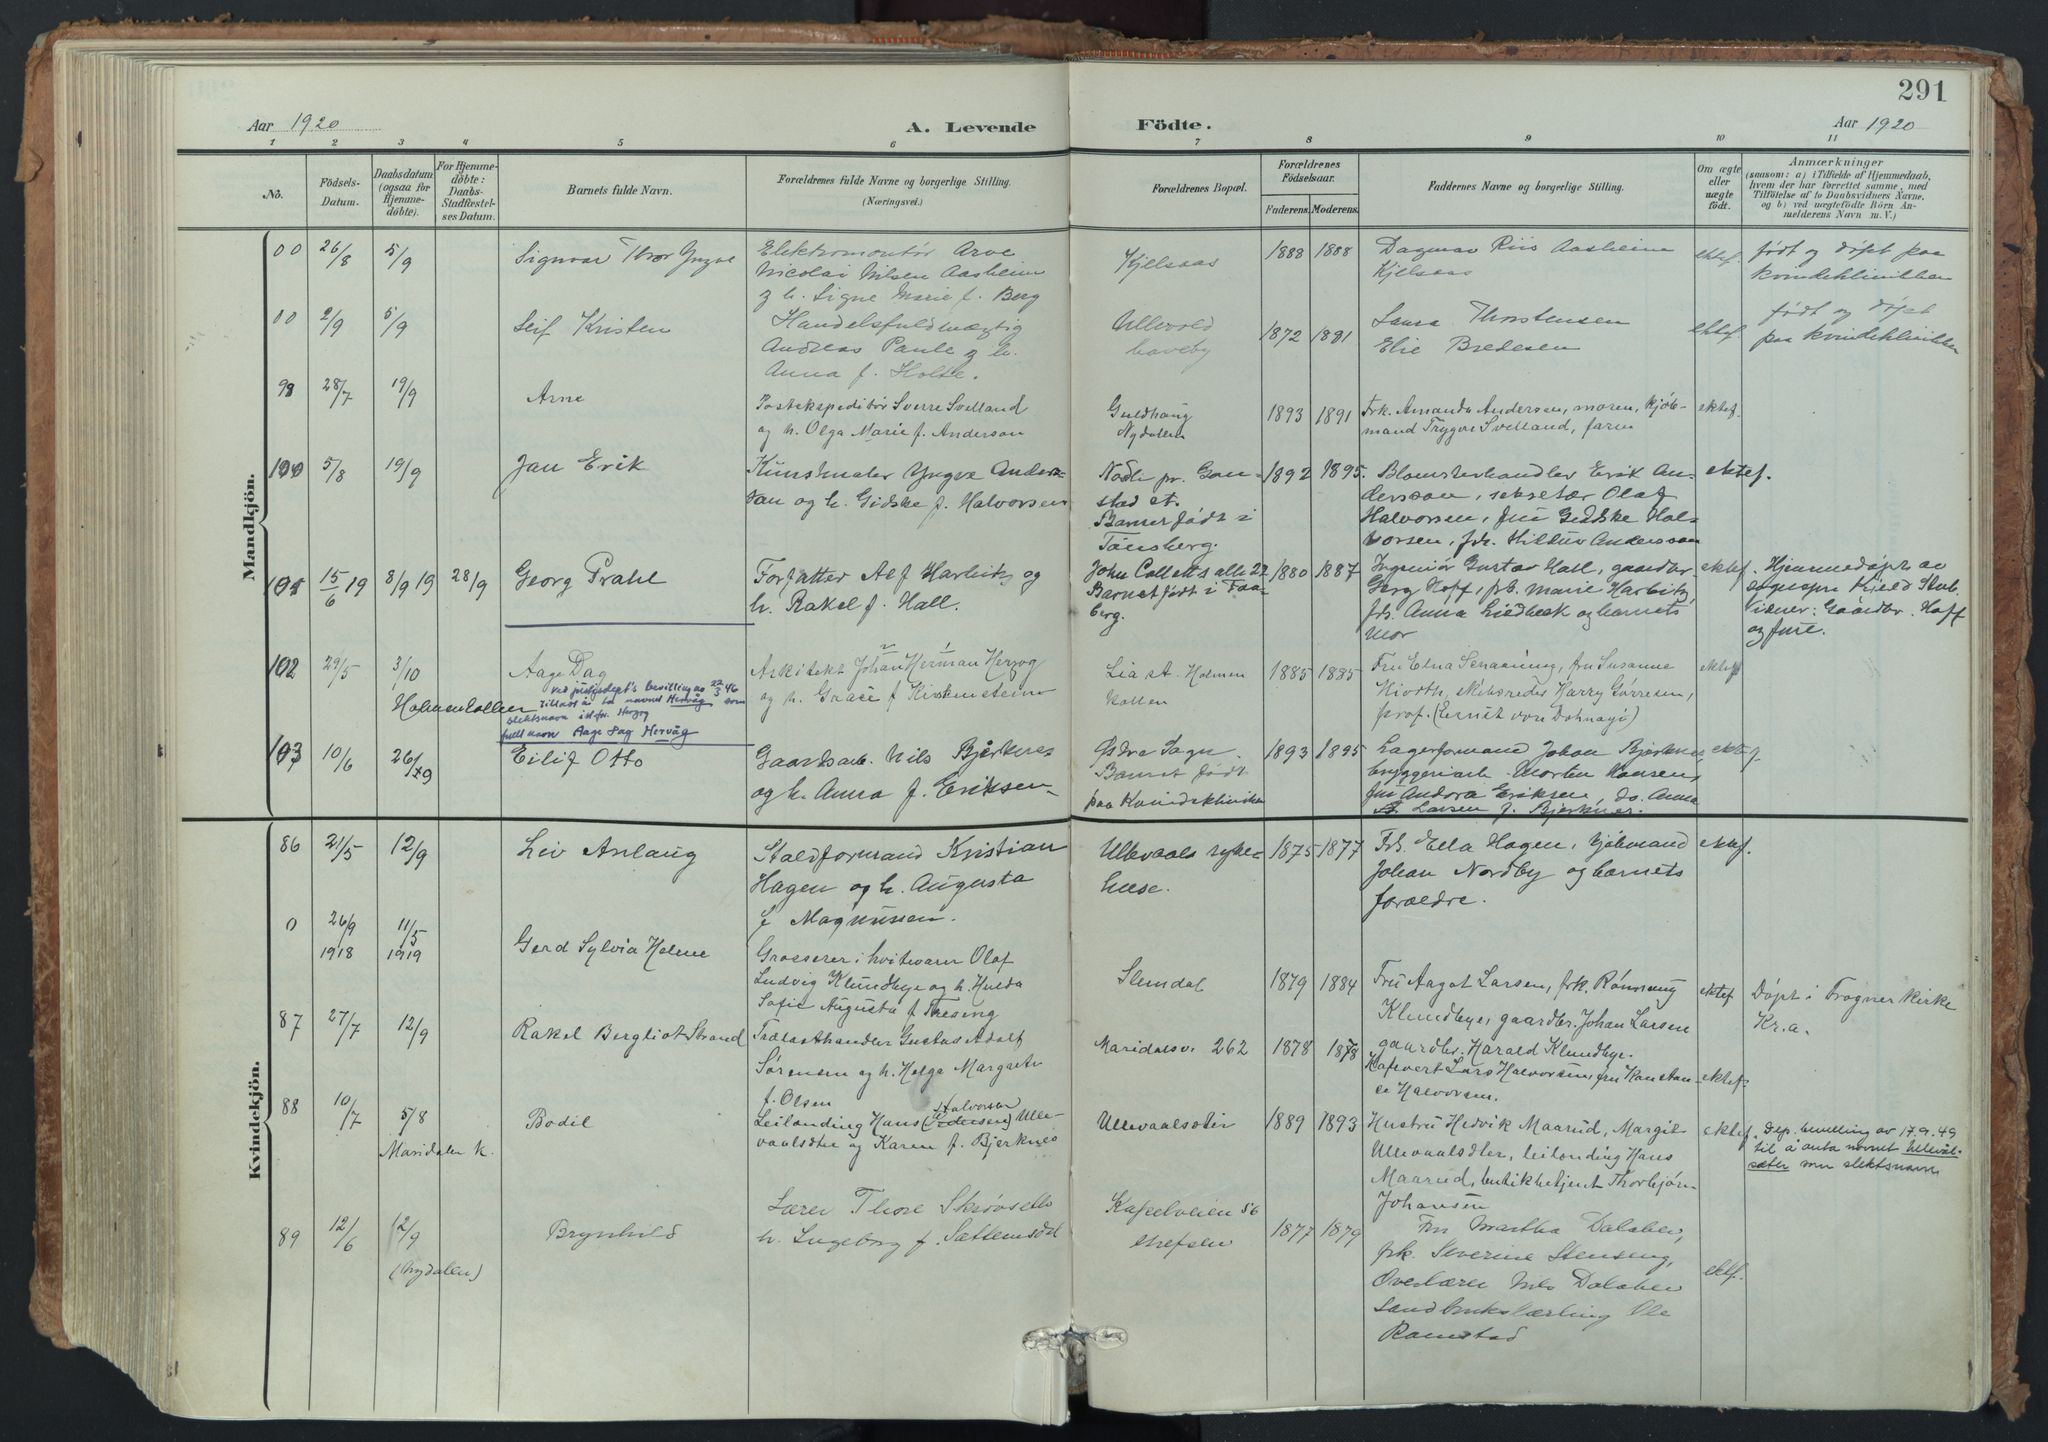 291
Aar 1920
A. Levende Födte.
Aar 1920
1 2 3 4 5 6 7 8 9 10 11
No.
Födsels-
Datum.
Daabsdatum
(ogsaa for
Hjemme-
döbte).
For Hjemme-
döbte:
Daabs-
Stadfæstel-
ses Datum.
Barnets fulde Navn.
Forældrenes fulde Navne og borgerlige Stilling.
(Næringsvei.)
Forældrenes Bopæl.
Forældrenes
Födselsaar.
Faderens. Moderens.
Faddernes Navne og borgerlige Stilling.
Om ægte
eller
uægte
födt.
Anmærkninger
(saasom: a) i Tilfælde af Hjemmedaab,
hvem der har forrettet samme, med
Tilföielse af to Daabsvidners Navne,
og b) ved uægtefödte Börn An-
melderens Navn m. V.)
Mandkjön.
00 26/8 5/9 Signvar Thor Yngve
Elektromontör Arve
Nicolai Nilsen Aasheim
g h. Signe Marie f. Berg
Kjelsaas
1888 1888
Dagmar Riis Aasheim
Kjelsaas
ektef.
født og døpt paa
kvindeklinikken
00 2/9 5/9 Leif Kristen
Handelsfuldmægtig
Andreas Paule g h.
Anna f. Holte.
Ullevold
haveby
1872 1881
Laura Thorstensen
Elie Bredesen
ektef.
født og døpt
paa kvindeklinikken
98 28/7 19/9 Arne
Postekspeditör Sverre Svelland
og h. Olga Marie f. Anderson
Guldhaug
Nydalen
1893 1891
Frk. Amanda Andersen, moren, kjöb-
mand Trygve Svelland, faren
ektef.
100 5/8 19/9 Jan Erik
Kunstmaler Yngve Anders-
son og h. Gidske f. Halvorsen
pr. Gau-
stad st.
Barnet født i
Tönsberg.
1892 1895
Blomsterhandler Erik An-
dersson, sekretær Olaf
Halvorsen, fru Gidske Hal-
vorsen, frk. Andersson
ektef.
101 15/6 19 8/9 19 28/9 Georg Prahl
Forfatter Alf Harbitz og
h. Rakel f. Hall.
John Colletts alle 22
Barnet født i Faa-
berg.
1880 1887
Ingeniör Gustav Hall, gaardbr.
Georg Hoff, frk. Marie Harbitz,
frk. Anna Lindbæk og barnets
mor
ektef.
Hjemmedøpt av
sognespr. Kjeld Stub.
Vidner: Gaardbr. Hoff
og frue.
102 29/5 3/10 Aage Dag
Holmenkollen
ved justisdept's bevilling av 22/3 46
tillatt å ta navnet Hervåg som
slektsnavn istf. for Herzog
fullt navn Aage Dag Hervåg
Arkitekt Johan Herman Herzog
og h. Grace f. Kirstensteine
Lia st. Holmen
kollen
1885 1885
Fru Edna Senaaning, fru Susanne
Hiorth, skibsreder Harry Görresen,
prof. (Ernst von Dohnayi)
ektef
103 10/6 26/9 Eilif Otto
Gaardsarb. Nils Bjerknes
og h. Anna f. Eriksen
Østre Sogn
Barnet født
paa Kvindeklinikken
1893 1895
Lagerformand Johan Bjerknes,
bryggeriarb. Morten Hansen,
fru Andora Eriksen, do. Anna
Larsen f. Bjerknes.
ektef.
Kvindekjön.
86 21/5 12/9 Liv Aslaug
Staldformand Kristian
Hagen og h. Augusta
f. Magnussen.
Ullevaals syke-
huse.
1875 1877
Frk. Ella Hagen, kjöbmand
Johan Nordby og barnets
forældre.
ektef.
0 26/9 1918 11/5 1919 Gerd Sylvia Helene
Grosserer i hvitevarer Olaf
Ludvig Klundbye og h. Hulda
Sofie Augusta f. Thesing
Slemdal
1879 1884
Fru Aagot Larsen, frk. Rønnaug
Klundbye, gaardbr. Johan Larsen
gaardbr. Harald Klundbye.
ektef
Döpt i Frogner kirke
Kr.a.
87 27/7 12/9 Rakel Bergliot Strand
Trælasthandler Gustav Adolf
Sørensen og h. Helga Margrete
f. Olsen
Maridalsv. 262
1878 1878
Kafevert Lars Halvorsen, fru Konstan-
se Halvorsen.
ektef
88 10/7 5/8 Bodil
Maridalen k.
Leilending Hans (Pedersen) Halvorsen Ulle-
vaalsæter og Karen f. Bjerknes
Ullevaalsæter
1889 1893
Hustru Hedvik Maarud, Margit
Ullevaalsæter, leilending Hans
Maarud, butikbetjent Thorbjörn
Johansen
ektef.
Dep. bevilling av 17.9.49
til å anta navnet Ullevål-
sæter som slektsnavn
89 12/6 12/9 Brynhild
(Nydalen)
Lærer Thore Skrövseth
h. Ingeborg f. Sættemsdal
Kapelveien 56
Grefsen
1877 1879
Fru Martha Dalaker,
frk. Severine Stenseng,
Overlærer Nils Dalaker
Landbrukslærling Ole
Ramstad
ektf.